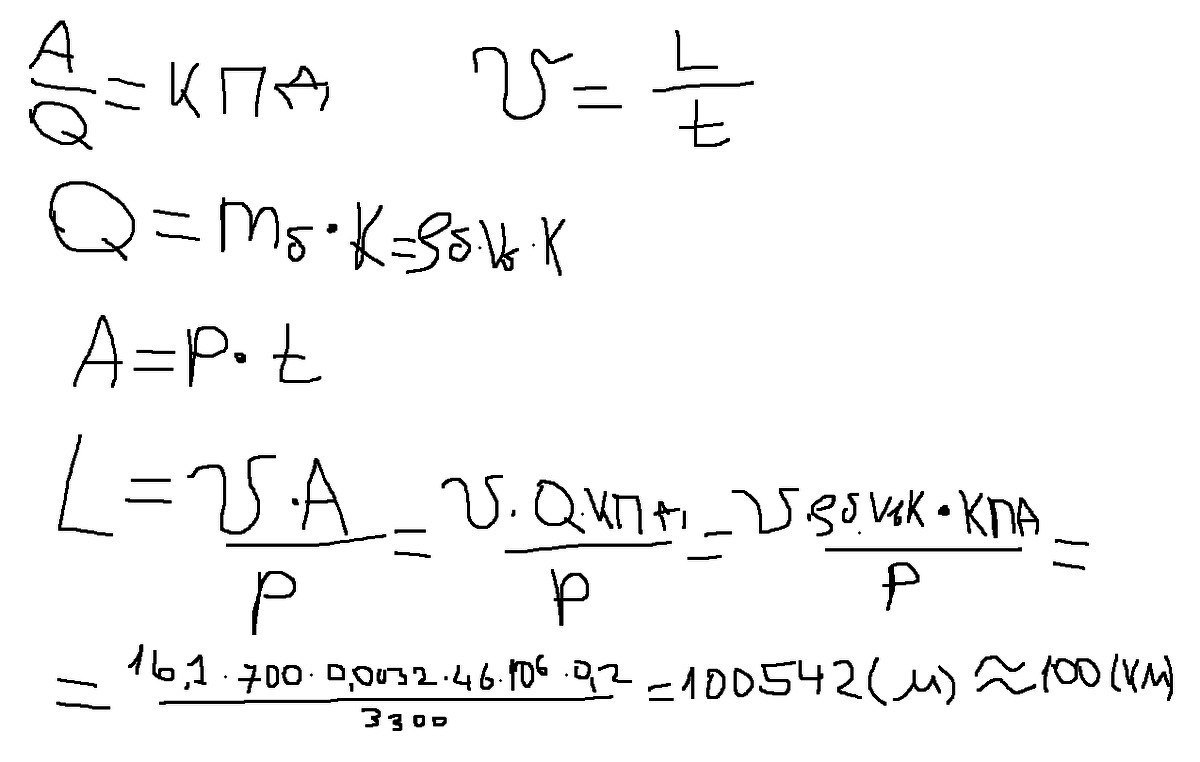 A/Q = КПД   υ = L/t
Q = m_б · K = ρ_б · V_б · K
A = P · t
L = υ · A / P = υ · Q · КПД / P = υ · ρ_б · V_б K · КПД / P =
= 16,1 · 700 · 0,0032 · 46 · 10⁶ · 0,2 / 3300 = 100542 (м) ≈ 100 (км)